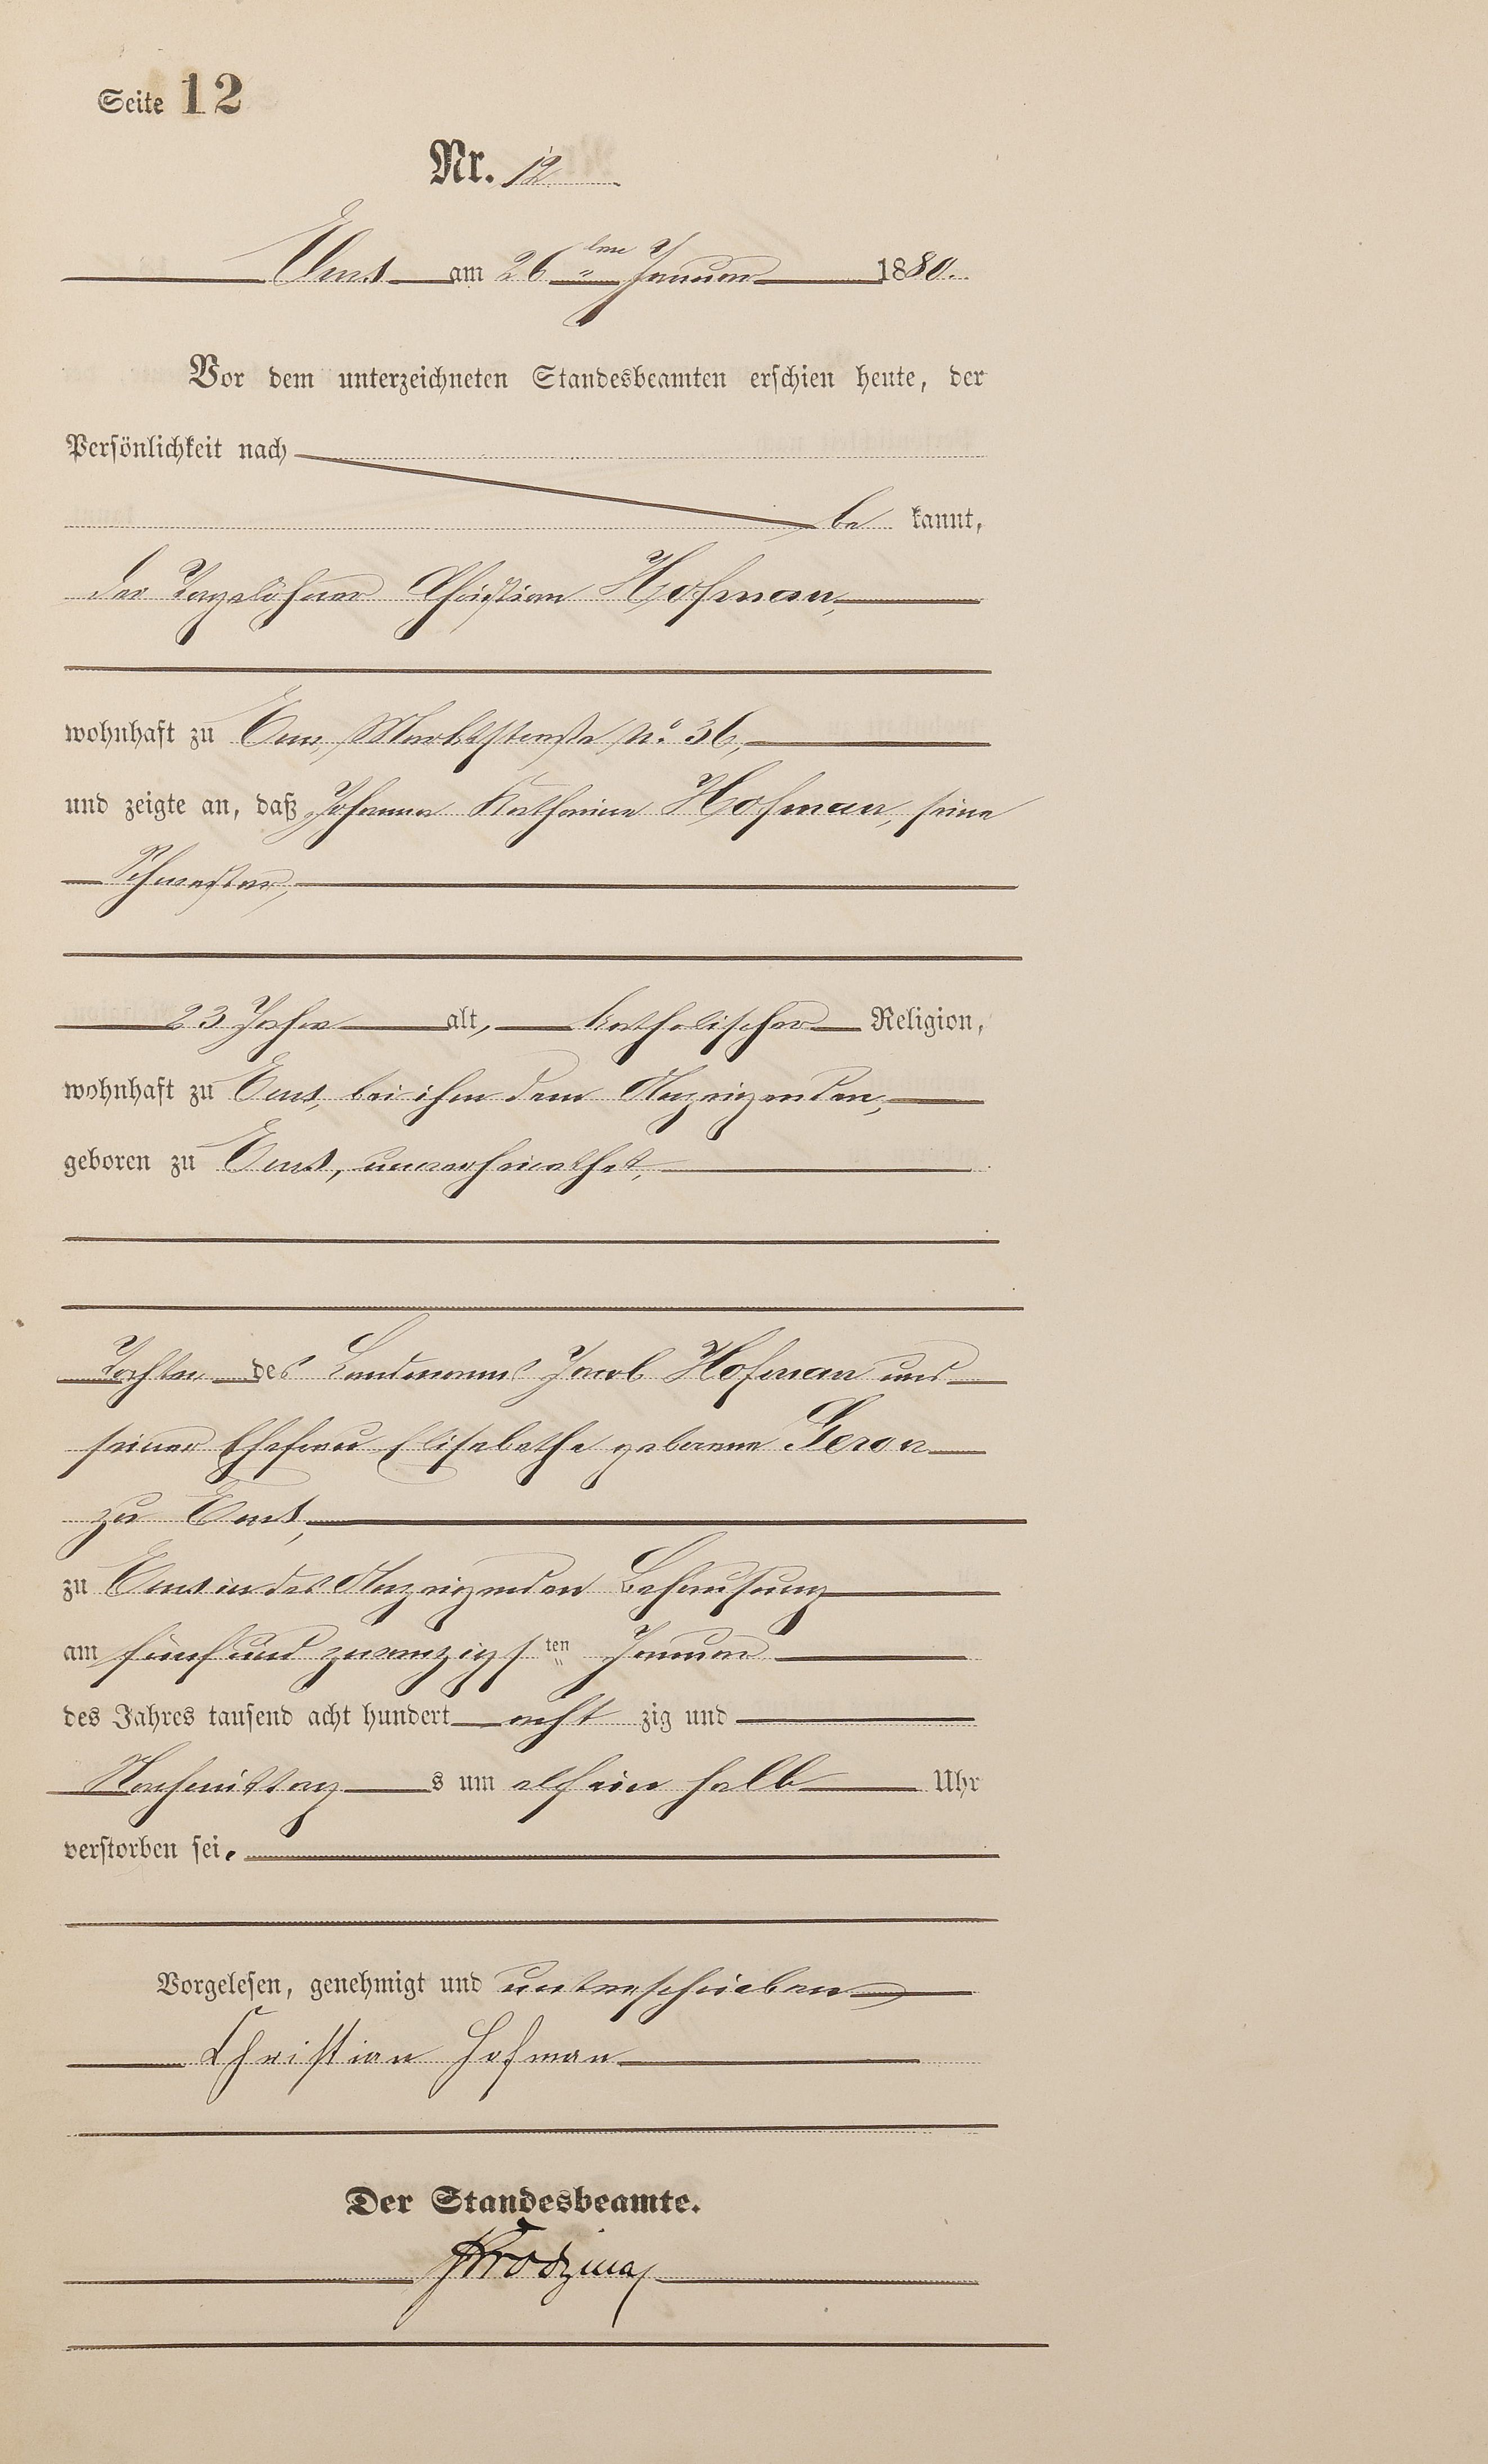 Seite 12
Nr. 12
Ems am 26ten Januar 1880.
Vor dem unterzeichneten Standesbeamten erschien heute, der
Persönlichkeit nach
be kannt,
der Tagelöhner Christian Hofman,
wohnhaft zu Ems, Marktstraße No. 36,
und zeigte an, daß Johanna Katharina Hofman, seine
Schwester,
23 Jahre alt, katholischer Religion,
wohnhaft zu Ems, bei ihm dem Anzeigenden,
geboren zu Ems, unverheirathet,
Tochter des Landmanns Jacob Hofman und
seiner Ehefrau Elisabetha geborenen Geron
zu Ems,
zu Ems in des Anzeigenden Behausung
am fünf und zwanzigsten Januar
des Jahres tausend acht hundert acht zig und
Nachmittag s um elf ein halb Uhr
verstorben sei.
Vorgelesen, genehmigt und unterschrieben
Christian Hofman
Der Standesbeamte.